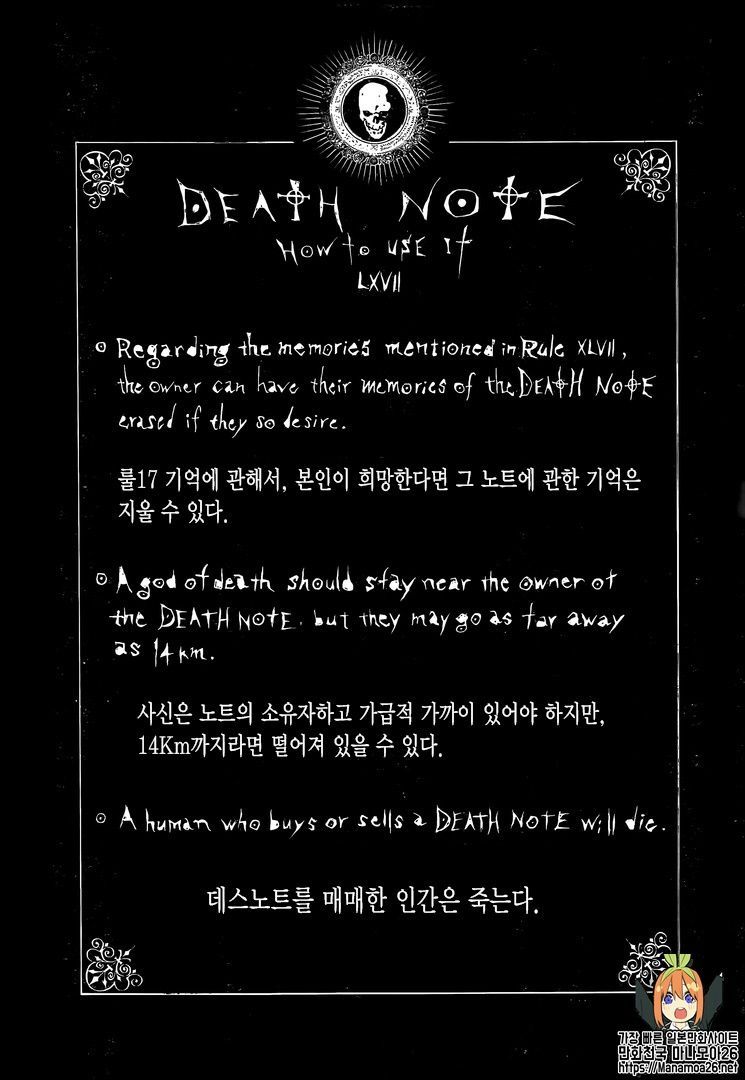 DEATH NOTE
HOW to USE It
LXVII
Regarding the memories mentioned in Rule XLVII,
the owner can have their memories of the DEATH NOTE
erased if they so desire.
룰17 기억에 관해서, 본인이 희망한다면 그 노트에 관한 기억은
지울 수 있다.
A god of death should stay near the owner of
the DEATH NOTE. but they may go as far away
as 14 km.
사신은 노트의 소유자하고 가급적 가까이 있어야 하지만,
14Km까지라면 떨어져 있을 수 있다.
A human who buys or sells a DEATH NOTE will die.
데스노트를 매매한 인간은 죽는다.
가장 빠른 일본만화사이트
만화천국 마나모아26
https://Manamoa26.net